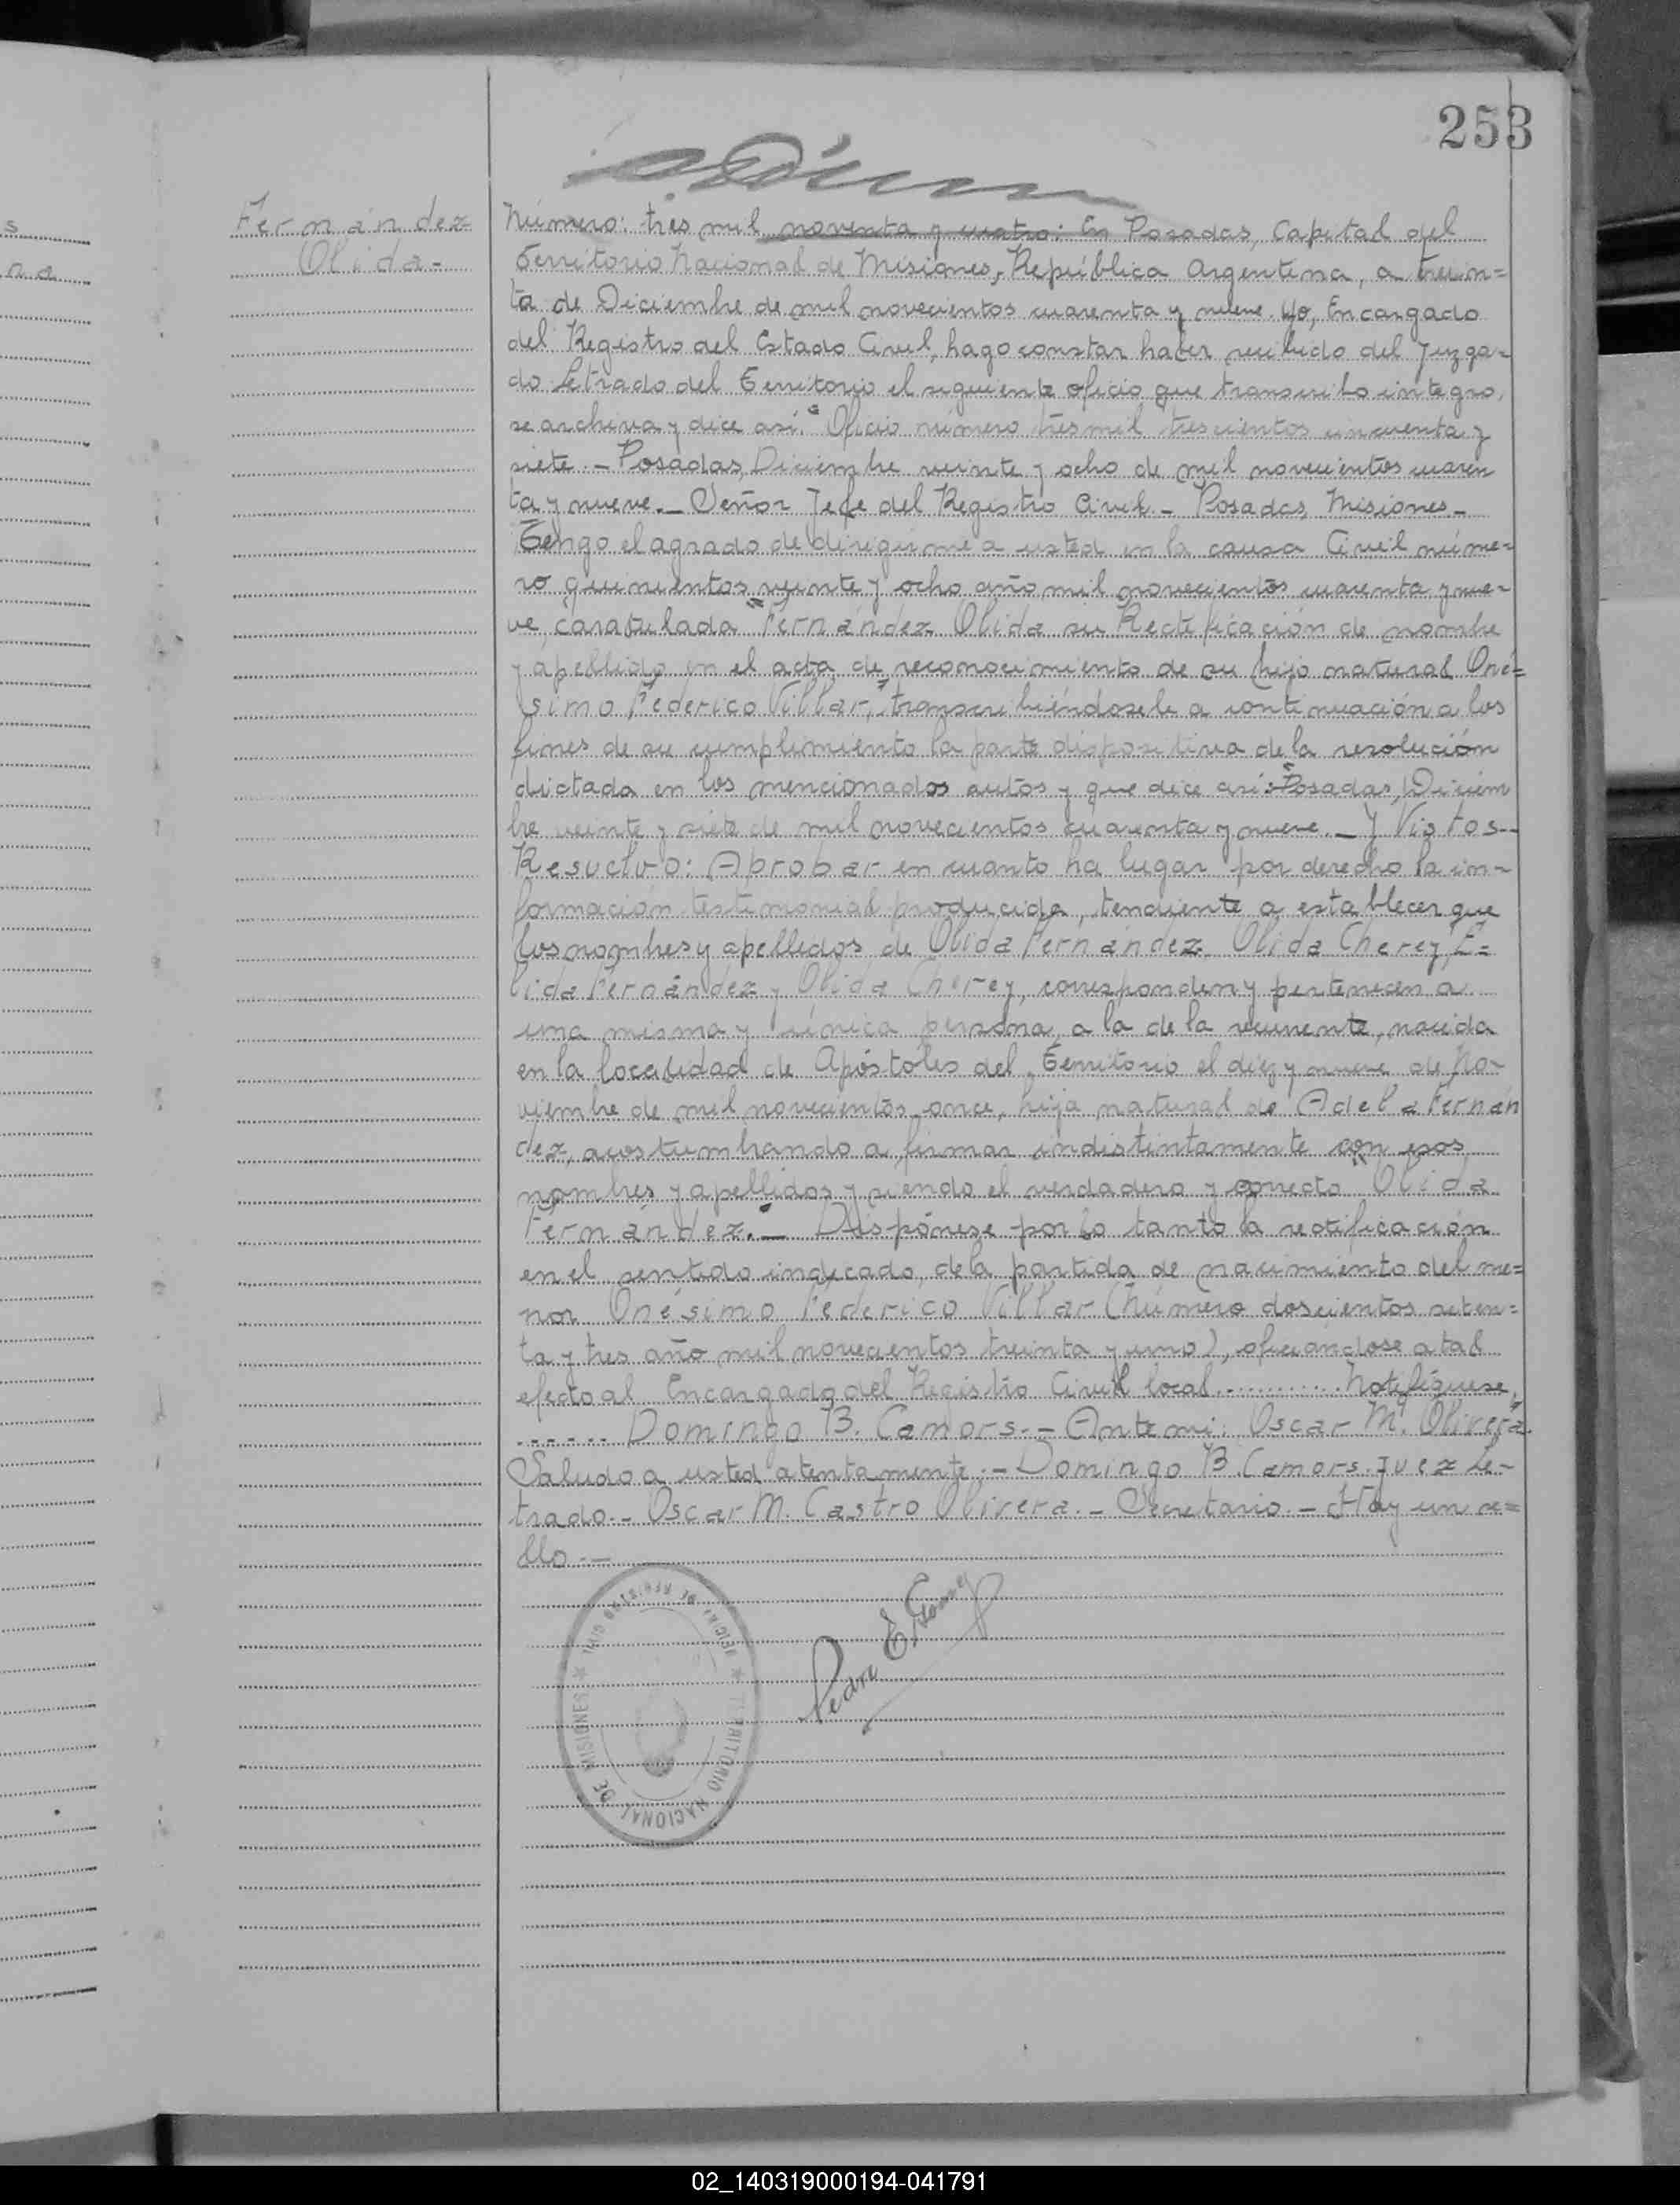 253
Fernández
Olida-
Número: tres mil noventa y cuatro: En Posadas, Capital del
Territorio Nacional de Misiones, República Argentina, a trein=
ta de Diciembre de mil novecientos cuarenta y nueve. Yo, Encargado
del Registro del Estado Civil, hago constar haber recibido del Juzga-
do Letrado del Territorio el siguiente oficio que transcribo integro,
se archiva y dice así: "Oficio número tres mil trescientos cincuenta y
siete.- Posadas, Diciembre veinte y ocho de mil novecientos cuaren
ta y nueve.- Señor Jefe del Registro Civil.- Posadas, Misiones-
Tengo el agrado de dirigirme a usted en la causa Civil núme=
ro quinientos veinte y ocho año mil novecientos cuarenta y nue-
ve, caratulada "Fernández Olida su Rectificación de nombre
y apellido en el acta de reconocimiento de su hijo natural Oné=
simo Federico Villar", transcribiéndosele a continuación a los
fines de su cumplimiento la parte dispositiva de la resolución
dictada en los mencionados autos y que dice así: "Posadas, Diciem
bre veinte y siete de mil novecientos cuarenta y nueve.- Y Vistos--
Resuelvo: Aprobar en cuanto ha lugar por derecho la in-
formación testimonial producida, tendiente a establecer que
los nombres y apellidos de Olida Fernández, Olida Cherey, E=
lida Fernández y Olida Cherey, corresponden y pertenecen a
una misma y única persona, a la de la recurrente, nacida
en la localidad de Apóstoles del Territorio el diez y nueve de No-
viembre de mil novecientos once, hija natural de Adela Fernán
dez, acostumbrando a firmar indistintamente con esos
nombres y apellidos y siendo el verdadero y correcto "Olida
Fernández".- Dispónese por lo tanto la rectificación
en el sentido indicado, de la partida de nacimiento del me=
nor Onésimo Federico Villar (Número doscientos seten=
ta y tres año mil novecientos treinta y uno), oficiándose a tal
efecto al Encargado del Registro Civil local............Notifíquese,
...... Domingo B. Camors.- Ante mi: Oscar M. Olivera.
Saludo a usted atentamente.- Domingo B. Camors. Juez Le-
trado.- Oscar M. Castro Olivera.- Secretario.- Hay un se=
llo.-
Pedro E Gomez
REGISTRO CIVIL ★ TERRITORIO NACIONAL DE MISIONES ★
02_140319000194-041791